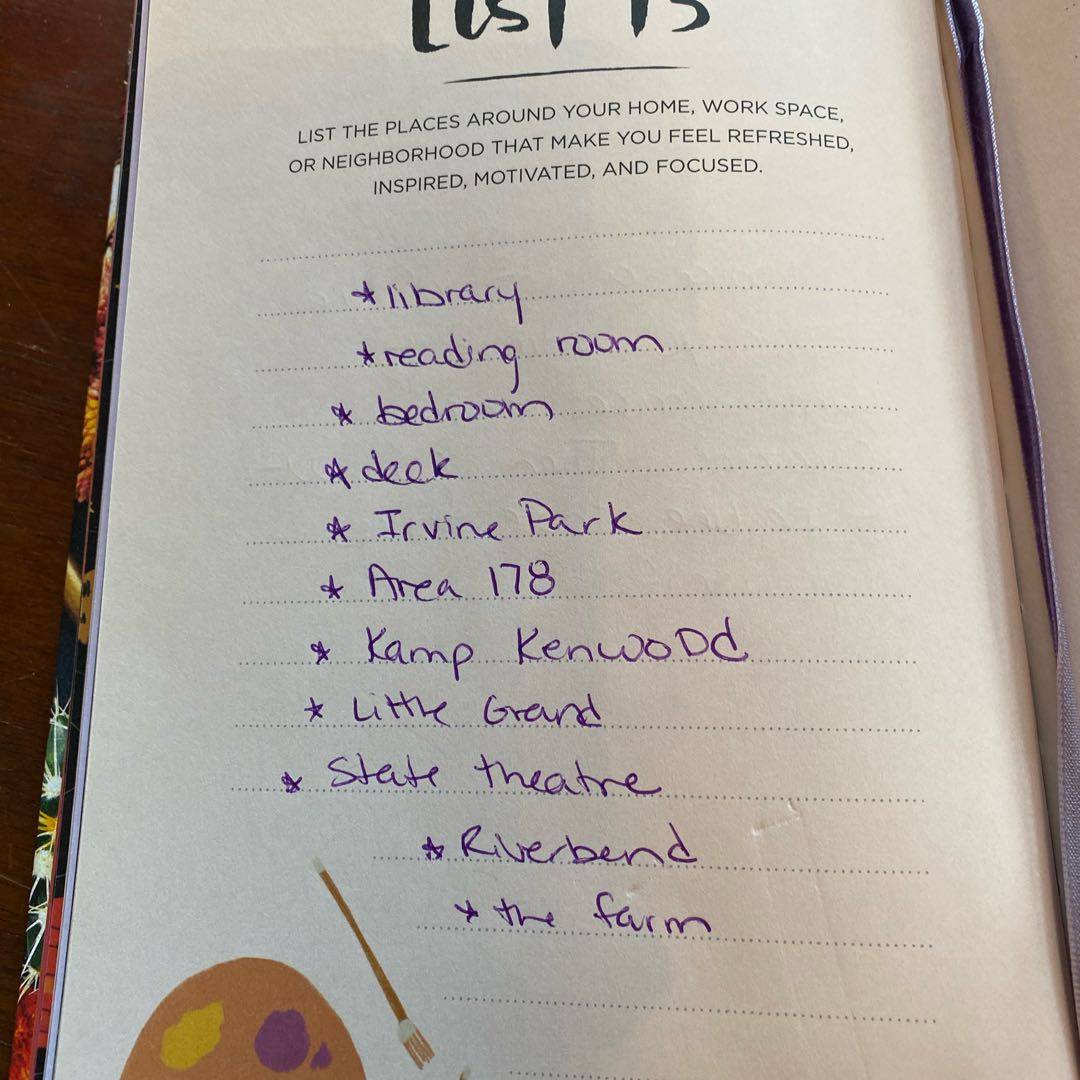 LIST 15
LIST THE PLACES AROUND YOUR HOME, WORK SPACE,
OR NEIGHBORHOOD THAT MAKE YOU FEEL REFRESHED,
INSPIRED, MOTIVATED, AND FOCUSED.
* library
* reading room
* bedroom
* deck
* Irvine Park
* Area 178
* Kamp KenwoDd
* Little Grand
* State theatre
* Riverbend
* the farm